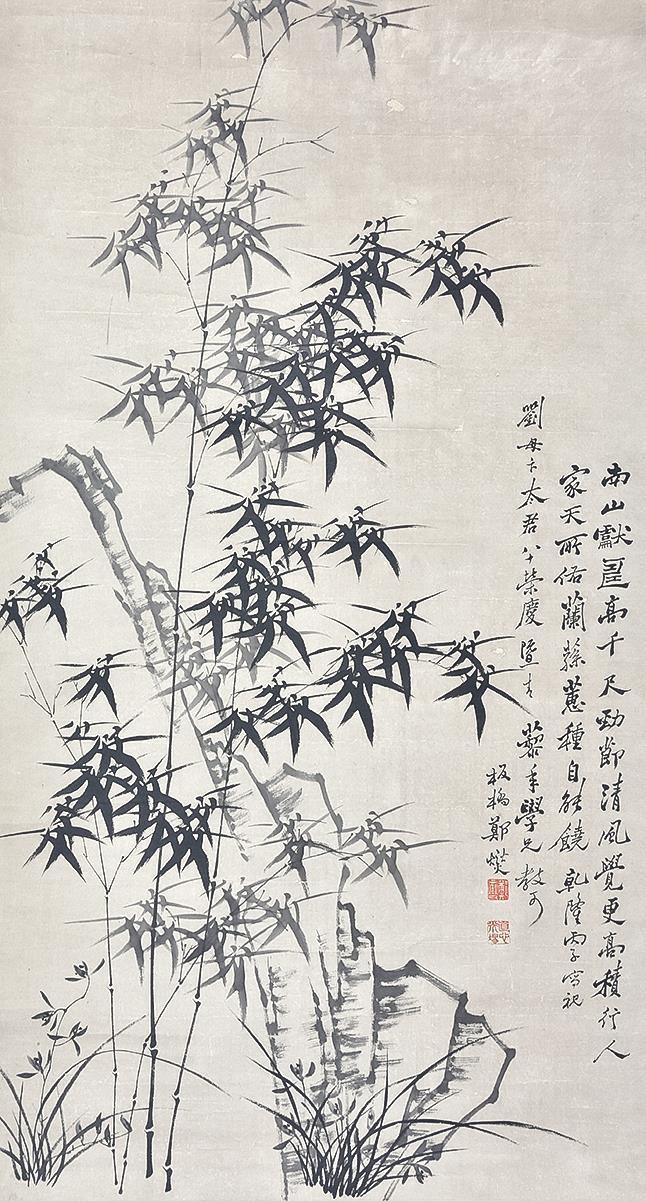 南山獻壽高千尺勁節清風覺更高積行人
家天所佑蘭蓀蕙種自能饒乾隆丙子寫祝
劉母卞太君八十榮慶並書 藜年學兄教可
板橋鄭燮